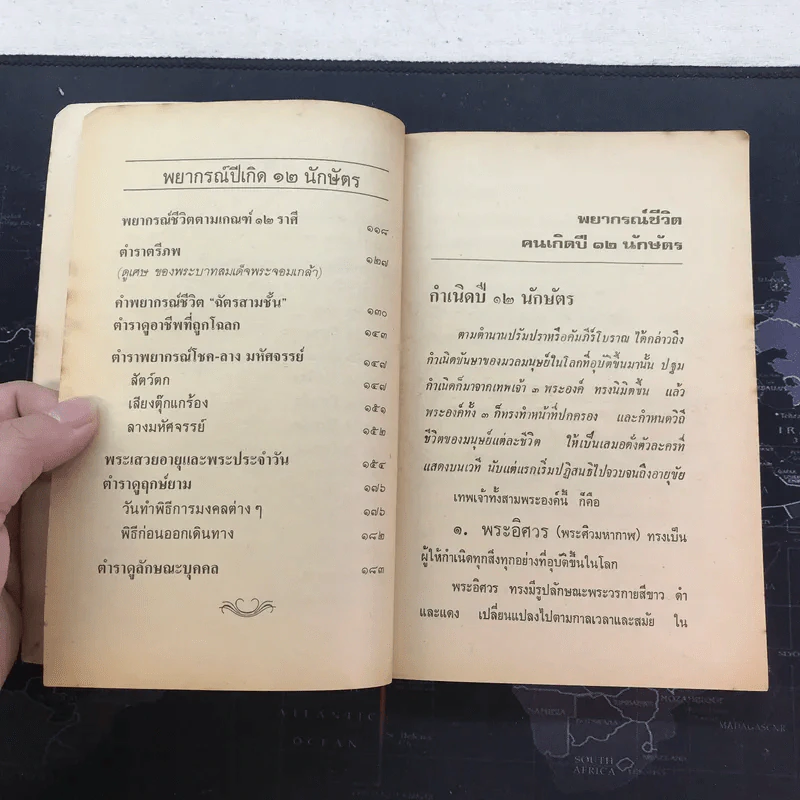 พยากรณ์ปีเกิด ๑๒ นักษัตร
พยากรณ์ชีวิตตามเกณฑ์ ๑๒ ราศี ๑๑๘
ตำราตรีภพ ๑๒๗
(ดูเศษ ของพระบาทสมเด็จพระจอมเกล้า)
คำพยากรณ์ชีวิต "ฉัตรสามชั้น" ๑๓๐
ตำราดูอาชีพที่ถูกโฉลก ๑๔๓
ตำราพยากรณ์โชค-ลาง มหัศจรรย์ ๑๔๗
สัตว์ตก ๑๔๗
เสียงตุ๊กแกร้อง ๑๕๑
ลางมหัศจรรย์ ๑๕๒
พระเสวยอายุและพระประจำวัน ๑๕๔
ตำราดูฤกษ์ยาม ๑๗๖
วันทำพิธีการมงคลต่าง ๆ ๑๗๖
พิธีก่อนออกเดินทาง ๑๘๒
ตำราดูลักษณะบุคคล ๑๘๓
พยากรณ์ชีวิต
คนเกิดปี ๑๒ นักษัตร
กำเนิดปี ๑๒ นักษัตร
ตามตำนานปรัมปราหรือคัมภีร์โบราณ ได้กล่าวถึง
กำเนิดชันษาของมวลมนุษย์ในโลกที่อุบัติขึ้นมานั้น ปฐม
กำเนิดก็มาจากเทพเจ้า ๓ พระองค์ ทรงนิมิตขึ้น แล้ว
พระองค์ทั้ง ๓ ก็ทรงทำหน้าที่ปกครอง และกำหนดวิถี
ชีวิตของมนุษย์แต่ละชีวิต ให้เป็นเสมอดั่งตัวละครที่
แสดงบนเวที นับแต่แรกเริ่มปฏิสนธิไปจวบจนถึงอายุขัย
เทพเจ้าทั้งสามพระองค์นี้ ก็คือ
๑. พระอิศวร (พระศิวมหากาพ) ทรงเป็น
ผู้ให้กำเนิดทุกสิ่งทุกอย่างที่อุบัติขึ้นในโลก
พระอิศวร ทรงมีรูปลักษณะพระวรกายสีขาว ดำ
และแดง เปลี่ยนแปลงไปตามกาลเวลาและสมัย ใน
ATLANTIC
OCEAN
SOUTH
AFRICA
NAMIBIA
MADAGASCAR